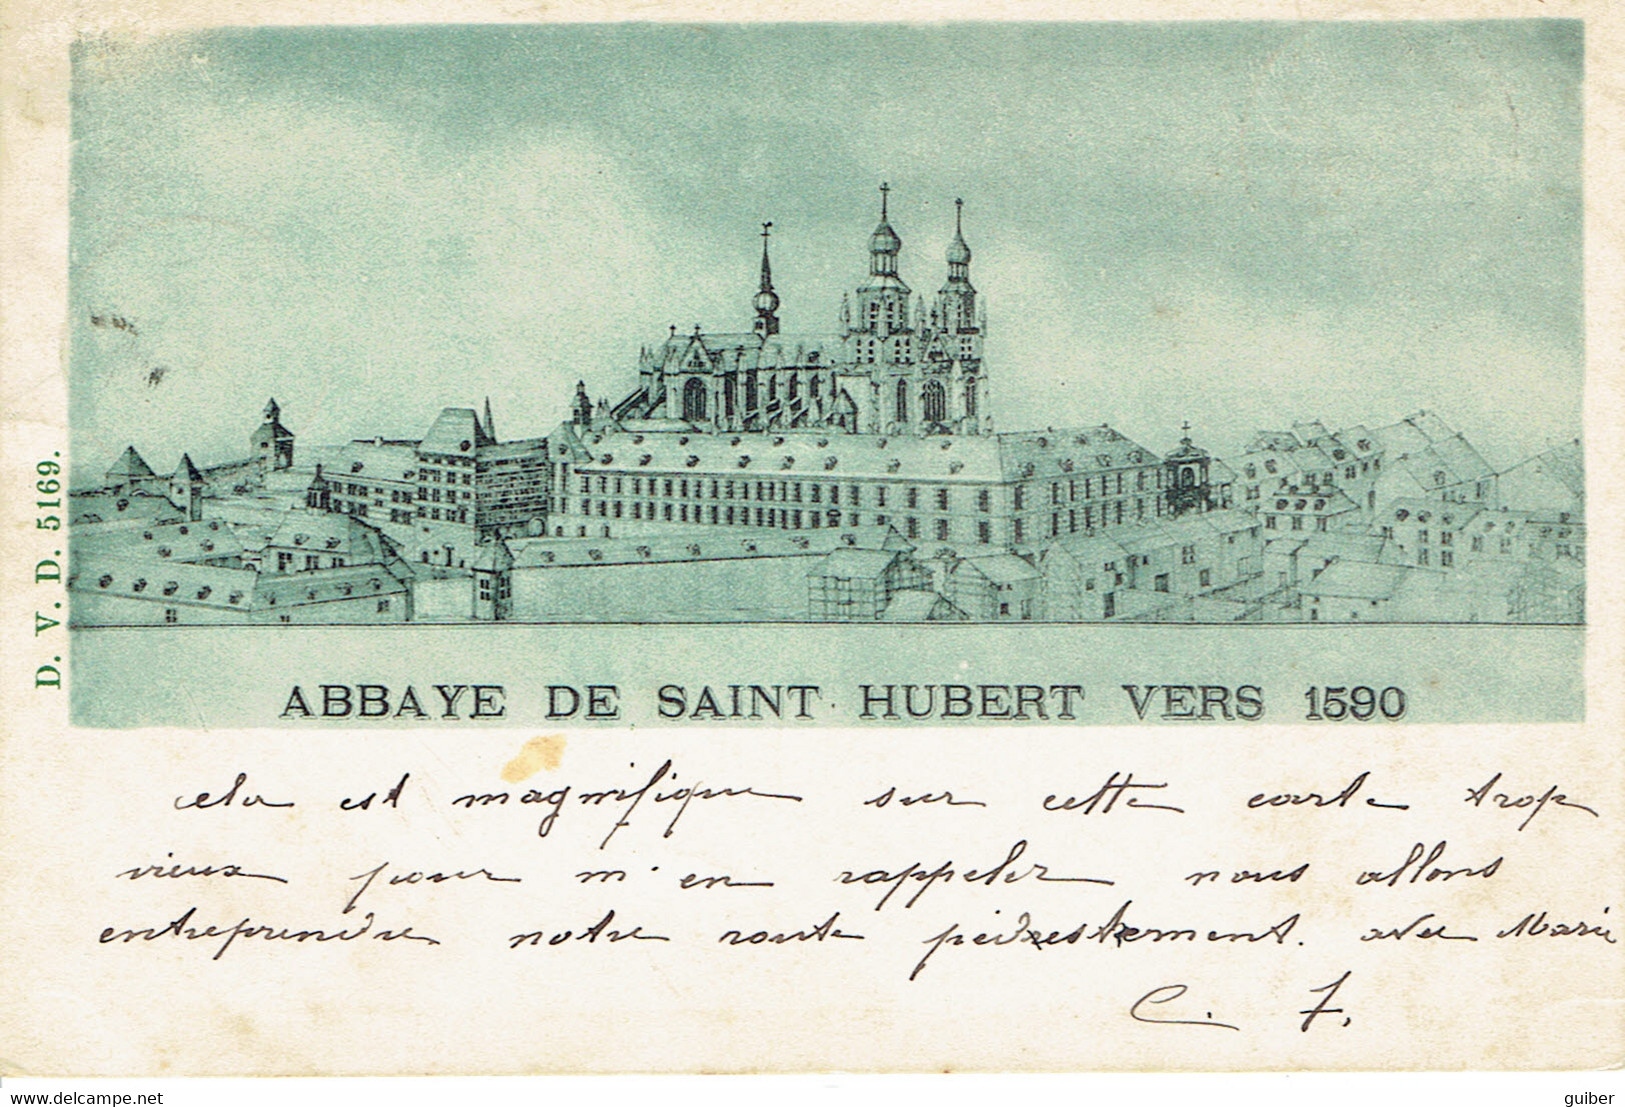 D. V. D. 5169.
ABBAYE DE SAINT HUBERT VERS 1590
cela est magnifique sur cette carte trop
vieux pour m'en rappeler nous allons
entreprendre notre route pédestrement. avec Marie
C. J.
www.delcampe.net
guiber